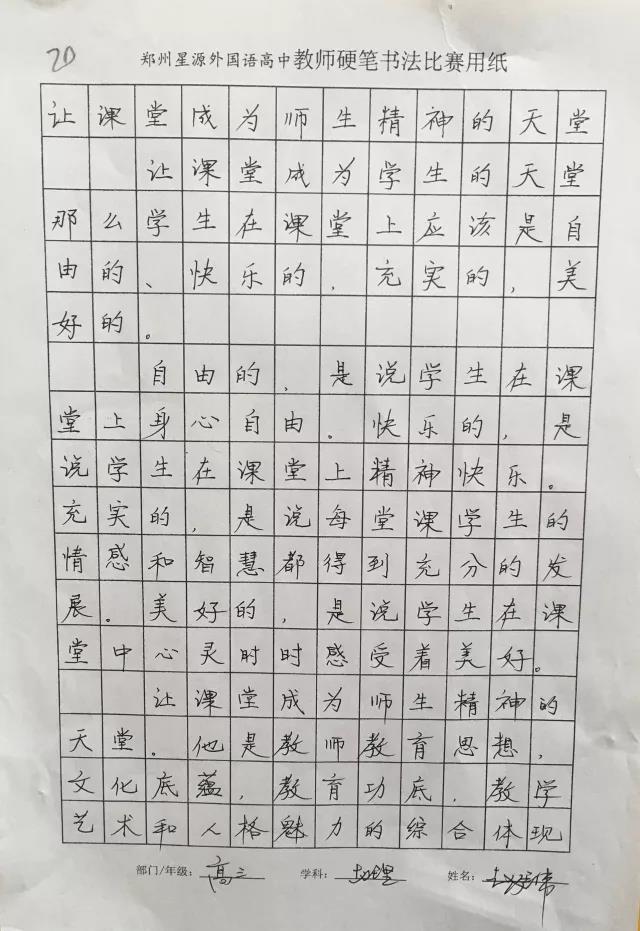 20
郑州星源外国语高中教师硬笔书法比赛用纸
让课堂成为师生精神的天堂
让课堂成为学生的天堂
那么学生在课堂上应该是自
由的、快乐的，充实的，美
好的。
自由的，是说学生在课
堂上身心自由。快乐的，是
说学生在课堂上精神快乐。
充实的，是说每堂课学生的
情感和智慧都得到充分的发
展。美好的，是说学生在课
堂中心灵时时感受着美好。
让课堂成为师生精神的
天堂。他是教师教育思想，
文化底蕴，教育功底，教学
艺术和人格魅力的综合体现
部门/年级：高三 学科：地理 姓名：